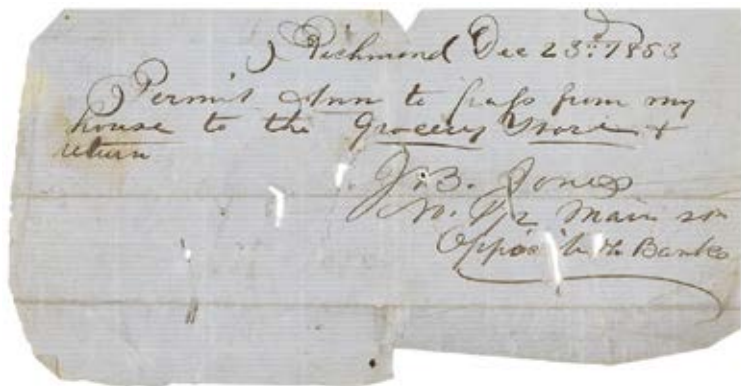 Richmond Dec 23rd 1853
Permit Ann to pass from my
house to the Grocery Store &
return
J. B. Jones
Main
Opposite the Banks